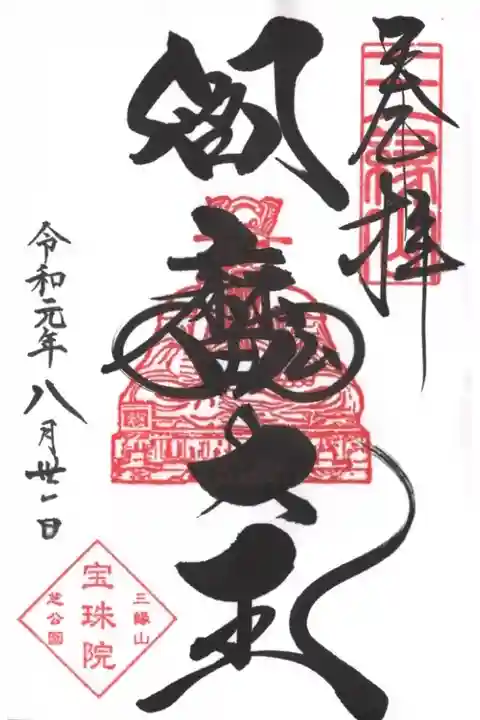 奉拝
三縁山
閻魔大王
令和元年八月丗一日
三縁山
宝珠院
芝公園